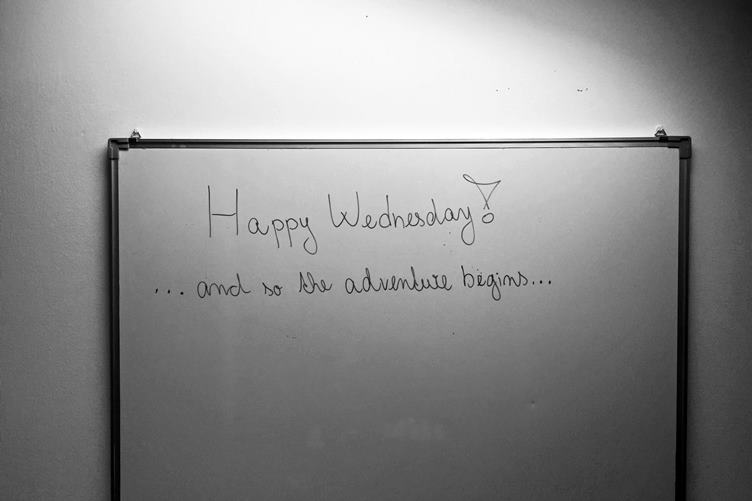 Happy Wednesday!
... and so the adventure begins...